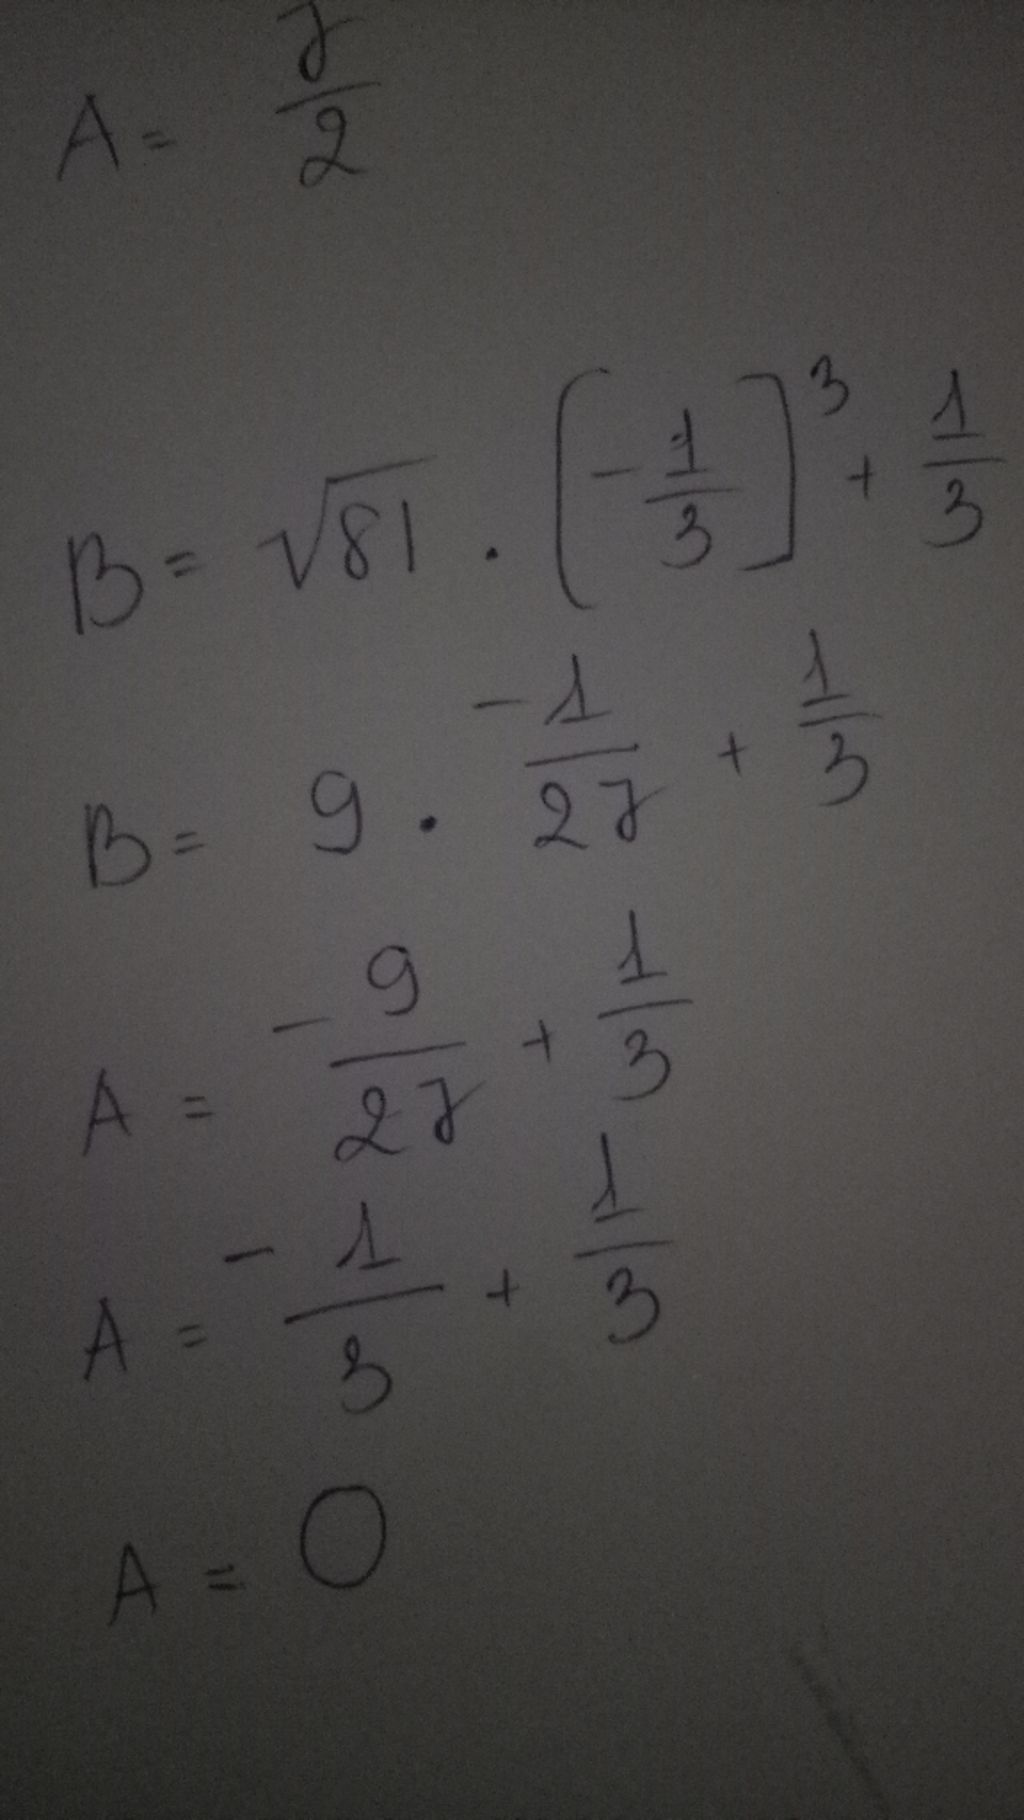 A = 7/2
B = √81 . (-1/3]³ + 1/3
B = 9 . -1/27 + 1/3
A = -9/27 + 1/3
A = -1/3 + 1/3
A = 0